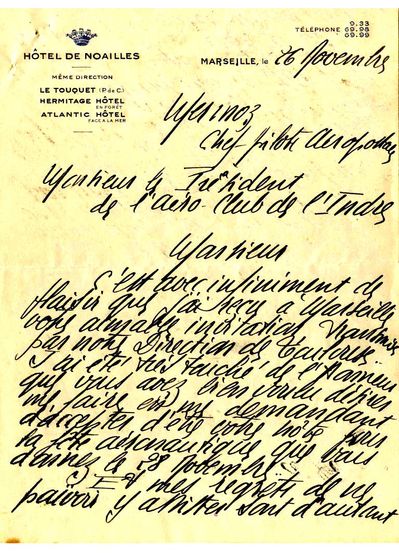 HÔTEL DE NOAILLES
MÊME DIRECTION
LE TOUQUET (P. de C.)
HERMITAGE HÔTEL
EN FORÊT
ATLANTIC HÔTEL
FACE A LA MER
TÉLÉPHONE
9.33
69.98
69.99
MARSEILLE, le 26 Novembre
Mermoz
Chef pilote Aeropostale
Monsieur le Président
de l'Aéro-Club de l'Indre
Monsieur
C'est avec infiniment de
plaisir que j'ai reçu à Marseille
votre aimable invitation transmise
par notre Direction de
J'ai été très touché de l'honneur
que vous avez bien voulu
me faire en me demandant
d'accepter d'être votre hôte pour
la fête aéronautique que vous
donnez le 28 Novembre.
Et mes regrets de ne
pouvoir y assister sont d'autant